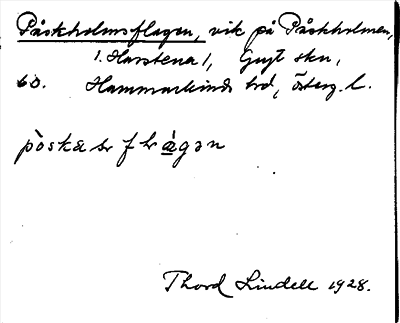 Påskholmsflagen, vik på Påskholmen,
1. Harstena 1, Gryt skn,
60. Hammarkinds hd, Österg. l.
Thord Lindell 1928.